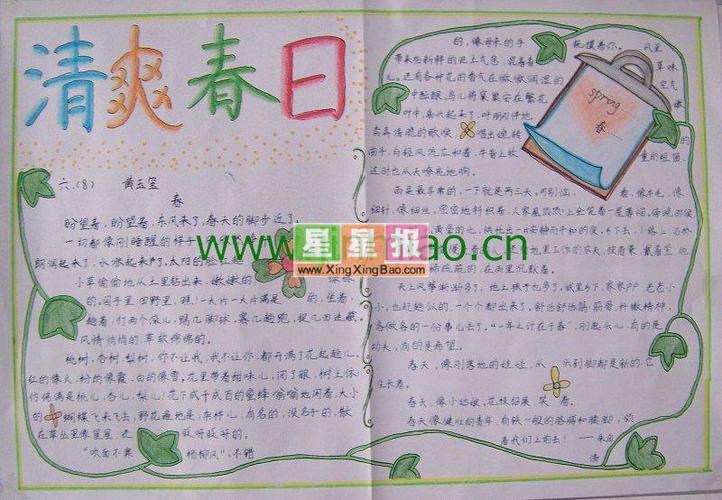 清爽春日
六.(8) 黄玉莹
春
盼望着,盼望着,东风来了,春天的脚步近了。
一切都像刚睡醒的样子
朗润起来了,水涨起来了,太阳的脸红起
小草偷偷地从土里钻出来,嫩嫩的
的,园子里,田野里,瞧!一大片一大片满是 的,坐着,
趟着,打两个滚儿,踢几脚球,赛几趟跑,捉几回迷藏。
风悄悄的,草软绵绵的。
桃树,杏树,梨树,你不让我,我不让你,都开满了花赶趟儿。
红的像火,粉的像霞,白的像雪,花里带着甜味儿,闭了眼,树上似
仿佛满是桃儿,杏儿,梨儿!花下成千成百的蜜蜂嗡嗡地闹着,大小
的 蝴蝶飞来飞去,野花遍地是:杂样儿,有名的,没名子的,散
在草丛里像星星,还 眨呀眨的。
"吹面不寒 杨柳风",不错
的,像母亲的手 抚摸着你。 风里
带来些新鲜的泥土气息,混着青 草味
儿,还有各种花的香气在微微润湿的 空气
中酝酿,鸟儿将窠巢安在繁花 嫩
叶中,高兴起来了,呼朋引伴地
卖弄清脆的歌喉 唱出婉转
的
曲子,与轻风流水应和着,牛背上牧 童的短笛,
这时也从天嘹亮地响。
spring
春
而是最寻常的,一下就是两三天,可别恼 看,像牛毛,像
细针,像细丝,密密地斜织着,人家屋顶顶上全笼着一层薄烟。
天上风筝渐渐多了,地上孩子也多了,城里乡下,家家户户,老老小
小,也赶趟似的,一个个都出来了。舒活舒活筋骨,抖擞精神,
各做各的一份事儿去了。"一年之计在于春",刚起头儿,有的是
功夫,有的是希望。
春天,像刚落地的娃娃,从 头到脚都是新的,它
生长着。
春天,像小姑娘,花枝招展 笑着,
春天像健壮的青年,有铁一般的胳膊和腰脚,领
着我们上前去! ——朱自
清
星星报
www.XingXingBao.com